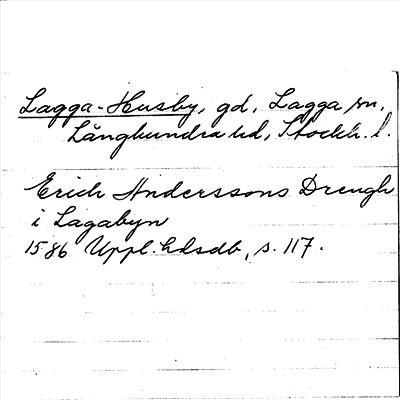 Lagga-Husby, gd, Lagga sn,
Långhundra hd, Stockh. l.
Erich Anderssons Drengh
i Lagabyn
1586 Uppl. hdsdb, s. 117.